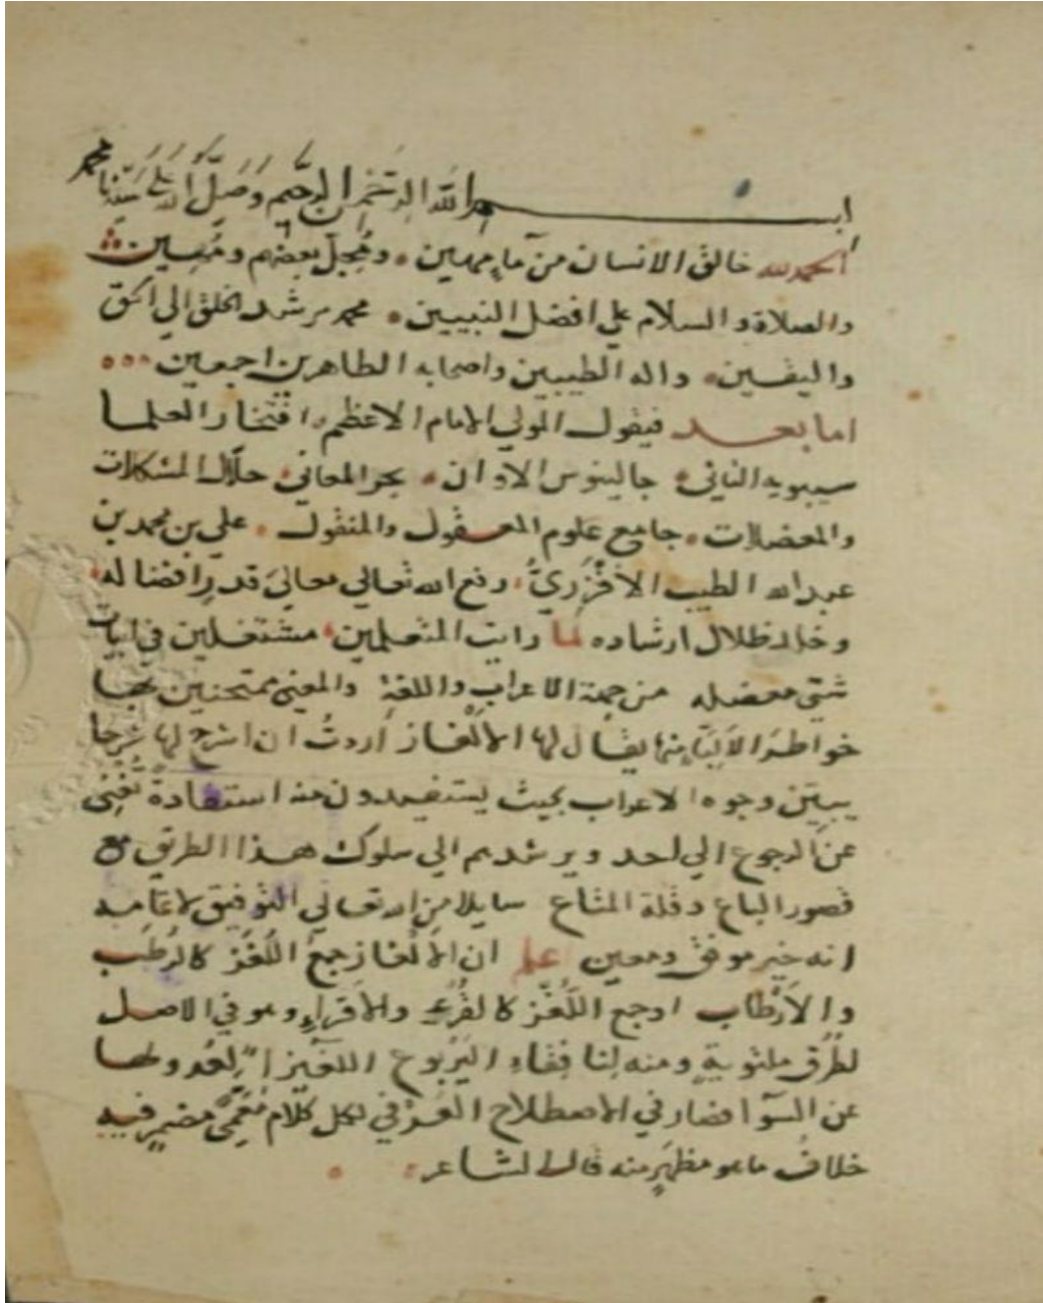 بسم الله الرحمن الرحيم وصلى الله على سيدنا محمد
الحمد لله خالق الانسان من مآء مهين ومبجل بعضهم ومهين
والصلاة والسلام علي افضل النبيين محمد مرشد الخلق الي الحق
واليقين واله الطيبين واصحابه الطاهرين اجمعين
اما بعد فيقول المولي الامام الاعظم افتخار العلما
سيبويه الثاني جالينوس الاوان بحر المعاني حلّال المشكلات
والمعضلات جامع علوم المعقول والمنقول علي بن محمد بن
عبد الله الطبيب الافْزَرِيُّ رفع الله تعالي معالي قدرِ افضاله
وخلد ظلال ارشاده لما رايت المتعلمين مشتغلين في ابيات
شتي معضله من جهة الاعراب واللغة والمعني ممتحنين بها
خواطرَ الالبّآءِ منها يقال لها الالْغاز اردتُ ان اشرح لها شرحا
يبيّن وجوه الاعراب بحيث يستفيدون منه استفادةً تُغنِي
عن الرجوع الي احد ويرشدهم الي سلوك هذا الطريق مع
قصور الباع وقلة المتاع سايلا من الله تعالي التوفيق لاتمامه
انه خير موفق ومعين اعلم ان الالْغاز جمعُ اللُّغَز كالرُطَب
والارْطاب او جمع اللُّغْز كالقُرْءِ والاقراءِ وهو في الاصل
لطُرُق ملتويةٍ ومنه لنافِقَاءِ اليَرْبُوع اللغّيزا لعدولها
عن السوآ فصار في الاصطلاح العُرْفي لكل كلام مُعَمًّى مضمرٍ فيه
خلافُ ما هو مظهَرٍ منه قال الشاعر